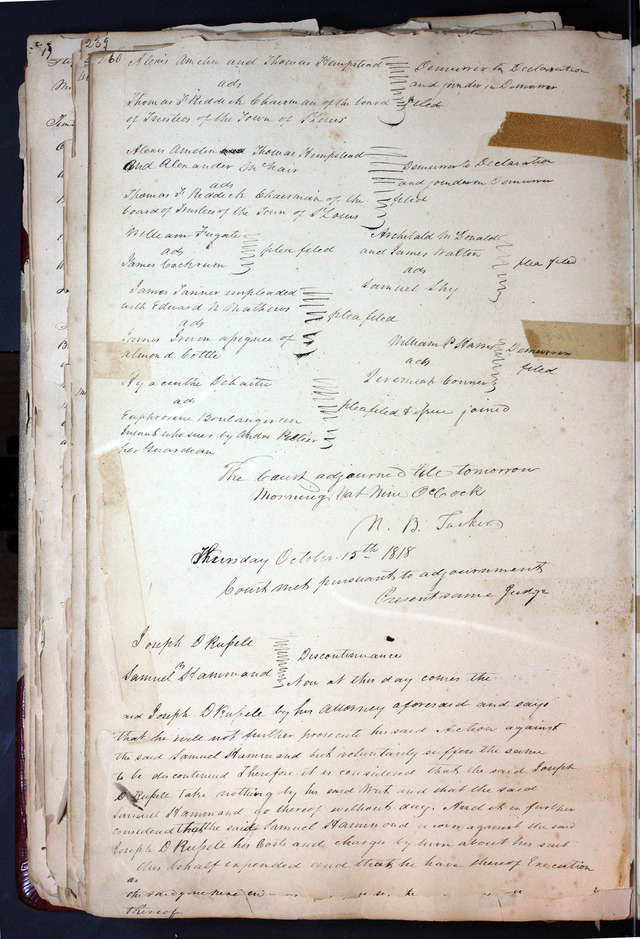 239
260
Alexis Amelin and Thomas Hempstead
ads
Thomas F Reddick Chairman of the board
of Trustees of the Town of St Louis
Demurrer to Declaration
and joinder in Demurrer
filed
Alexis Amelin and Thomas Hempstead
and Alexander McNair
ads
Thomas F Reddick Chairman of the
board of Trustees of the Town of St Louis
Demurrer to Declaration
and joinder in Demurrer
filed
William Fugate
ads
James Cockrum
plea filed
Archibald McDonald
and James Walton
ads
Samuel Shy
plea filed
James Tanner impleaded
with Edward N Mathews
ads
James Irwin assignee of
almond Cottle
plea filed
William P Harris
ads
Jeremiah Conner
Demurrer
filed
Hyacinthe Dehaitre
ads
Euphrosine Boulanger an
Infant who sues by Andre Peltier
her Guardian
plea filed & issue joined
The Court adjourned till tomorrow
Morning at Nine OClock
N. B. Tucker
Thursday October 15th 1818
Court met pursuant to adjournment
Present same Judge
Joseph D Rupele
vs
Samuel Hammand
Discontinuance
Now at this day comes the
said Joseph D Rupele by his Attorney aforesaid and says
that he will not further prosecute his said Action against
the said Samuel Hammand but voluntarily suffers the same
to be discontinued Therefore it is considered that the said Joseph
D Rupele take nothing by his said Writ and that the said
Samuel Hammand go thereof without day. And it is further
considered that the said Samuel Hammond recover against the said
Joseph D Rupele his Costs and charges by him about his suit
in this behalf expended and that he have thereof Execution
&c
thereof